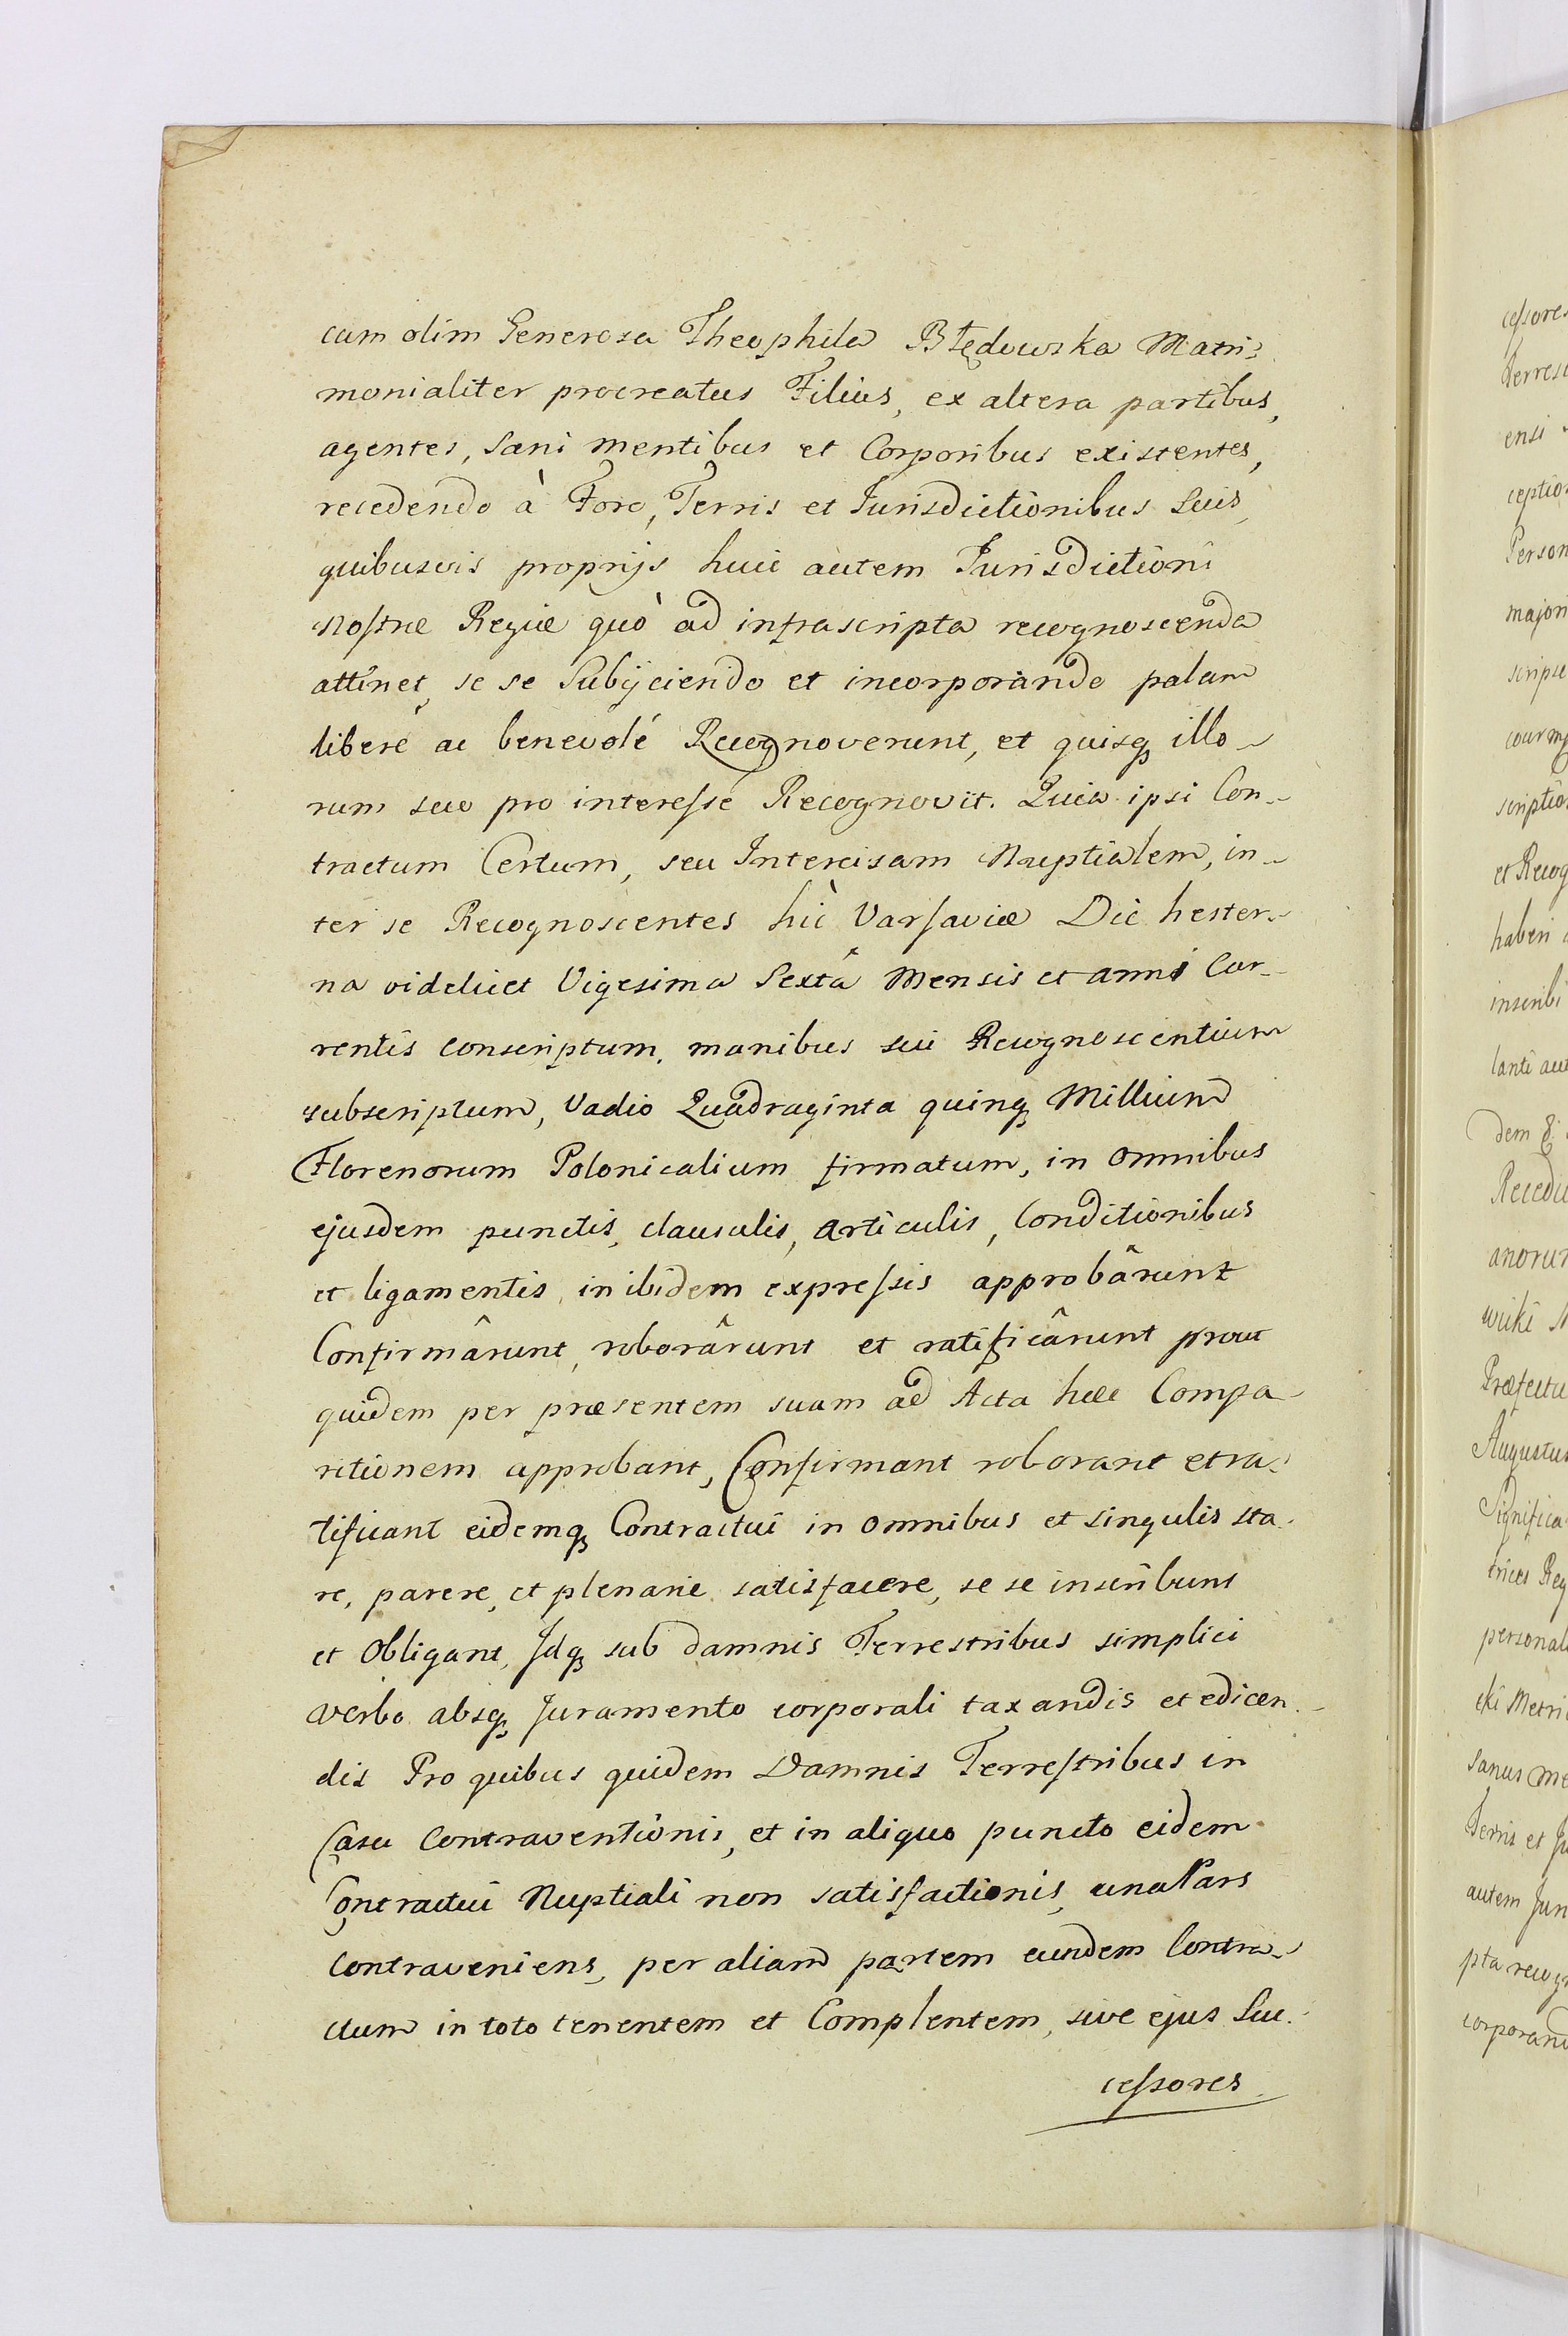 cum olim Generosa Theophila Błędowska Matri-
monialiter procreatus Filius, ex altera partibus,
agentes, Sani mentibus et Corporibus existentes,
recedendo à Foro, Terris et Jurisdictionibus Suis,
quibusvis proprijs huic autem Jurisdictioni
Nostræ Regiæ quò ad infrascripta recognoscenda
attinet, se se Subijciendo et incorporando palam
liberé ac benevolé Recognoverunt, et quisq illo-
rum suo pro interesse Recognovit. Quia ipsi Con-
tractum Certum, seu Intercisam Nuptialem, in-
ter se Recognoscentes hic Varsaviæ Die hester-
na videlicet Vigesima Sextâ Mensis et anni Cur-
rentis conscriptum, manibus sui Recognoscentium
subscriptum, Vadio Quadraginta quinq Millium
Florenorum Polonicalium firmatum, in omnibus
ejusdem punctis, clausulis, articulis, Conditionibus
et ligamentis, inibidem expressis approbârunt
Confirmârunt, roborârunt et ratificârunt prout
quidem per præsentem suam ad Acta hæc Compa-
ritionem approbant, Confirmant roborant et ra-
tificant eidemq Contractui in omnibus et singulis sta-
re, parere, et plenarie satisfacere, se se inscribunt
et Obligant, Idq sub damnis Terrestribus simplici
verbo absq Juramento corporali taxandis et edicen-
dis Pro quibus quidem Damnis Terrestribus in
Casu Contraventionis, et in aliquo puncto eidem
Contractui Nuptiali non satisfactionis, una Pars
contraveniens, per aliam partem eundem Contra-
ctum in toto tenentem et Complentem, sive ejus Suc-
cessores
cessores
Terrest
ensi
ceptio
Person
majori
scripse
scriptio
et Recog
haberi
inscribi
lanti aut
dem
Recedu
anorum
wicki
Præfectu
Augustus
Significa
trices Reg
personal
cki Metri
sanus me
Terris et Ju
autem Juri
pta recog
corporand